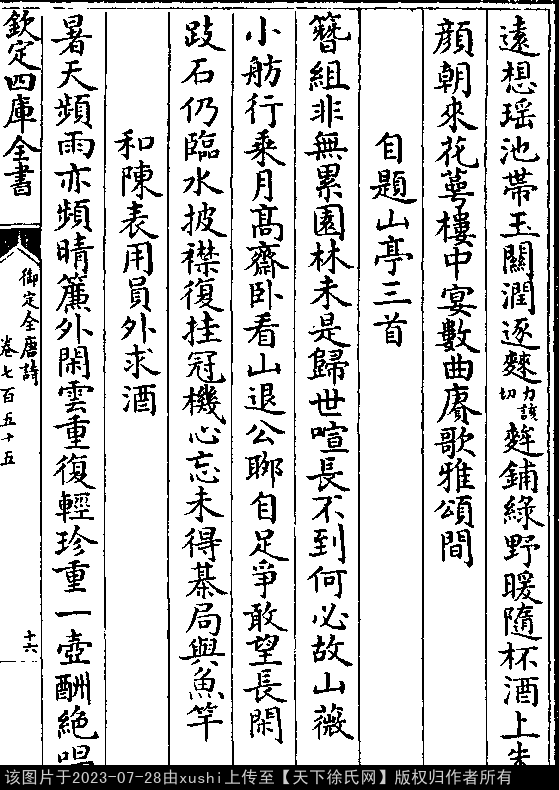 遠想瑶池帶玉關潤逐麳力該切麰鋪綠野暖隨杯酒上朱
顔朝來花蕚樓中宴數曲賡歌雅頌間
自題山亭三首
簪組非無累園林未是歸世喧長不到何必故山薇
小舫行乗月髙齋卧看山退公聊自足爭敢望長閑
跂石仍臨水披襟復挂冠機心忘未得棊局與魚竿
和陳表用員外求酒
暑天頻雨亦頻晴簾外閑雲重復輕珍重一壺酬絶唱
欽定四庫全書
御定全唐詩
卷七百五十五
十六
该图片于2023-07-28由xushi上传至【天下徐氏网】版权归作者所有